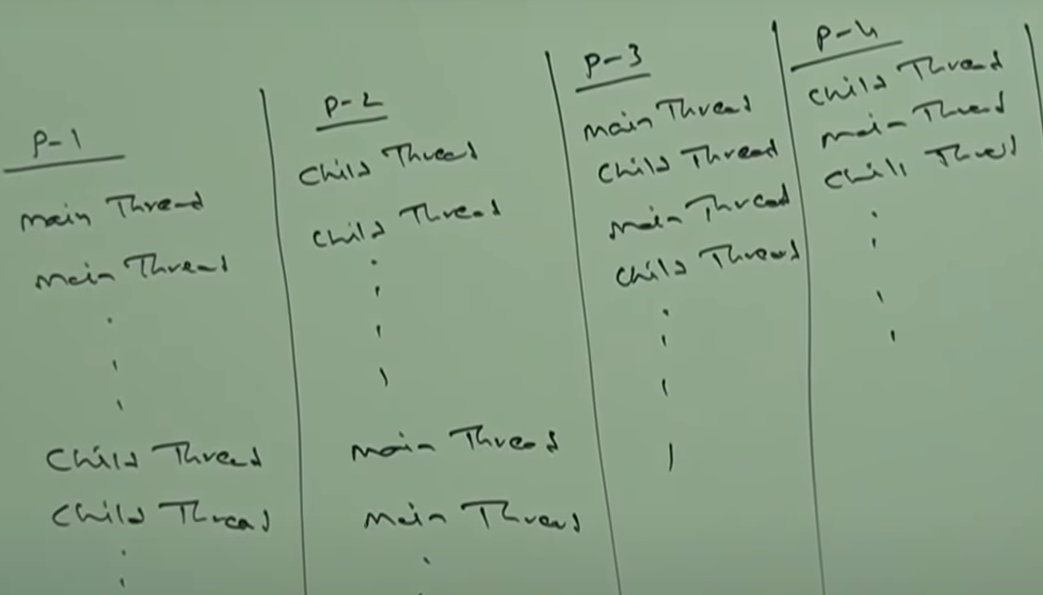 P-1
Main Thread
Main Thread
Child Thread
Child Thread
P-2
Child Thread
Child Thread
Main Thread
Main Thread
P-3
Main Thread
Child Thread
Main Thread
Child Thread
P-4
Child Thread
Main Thread
Child Thread